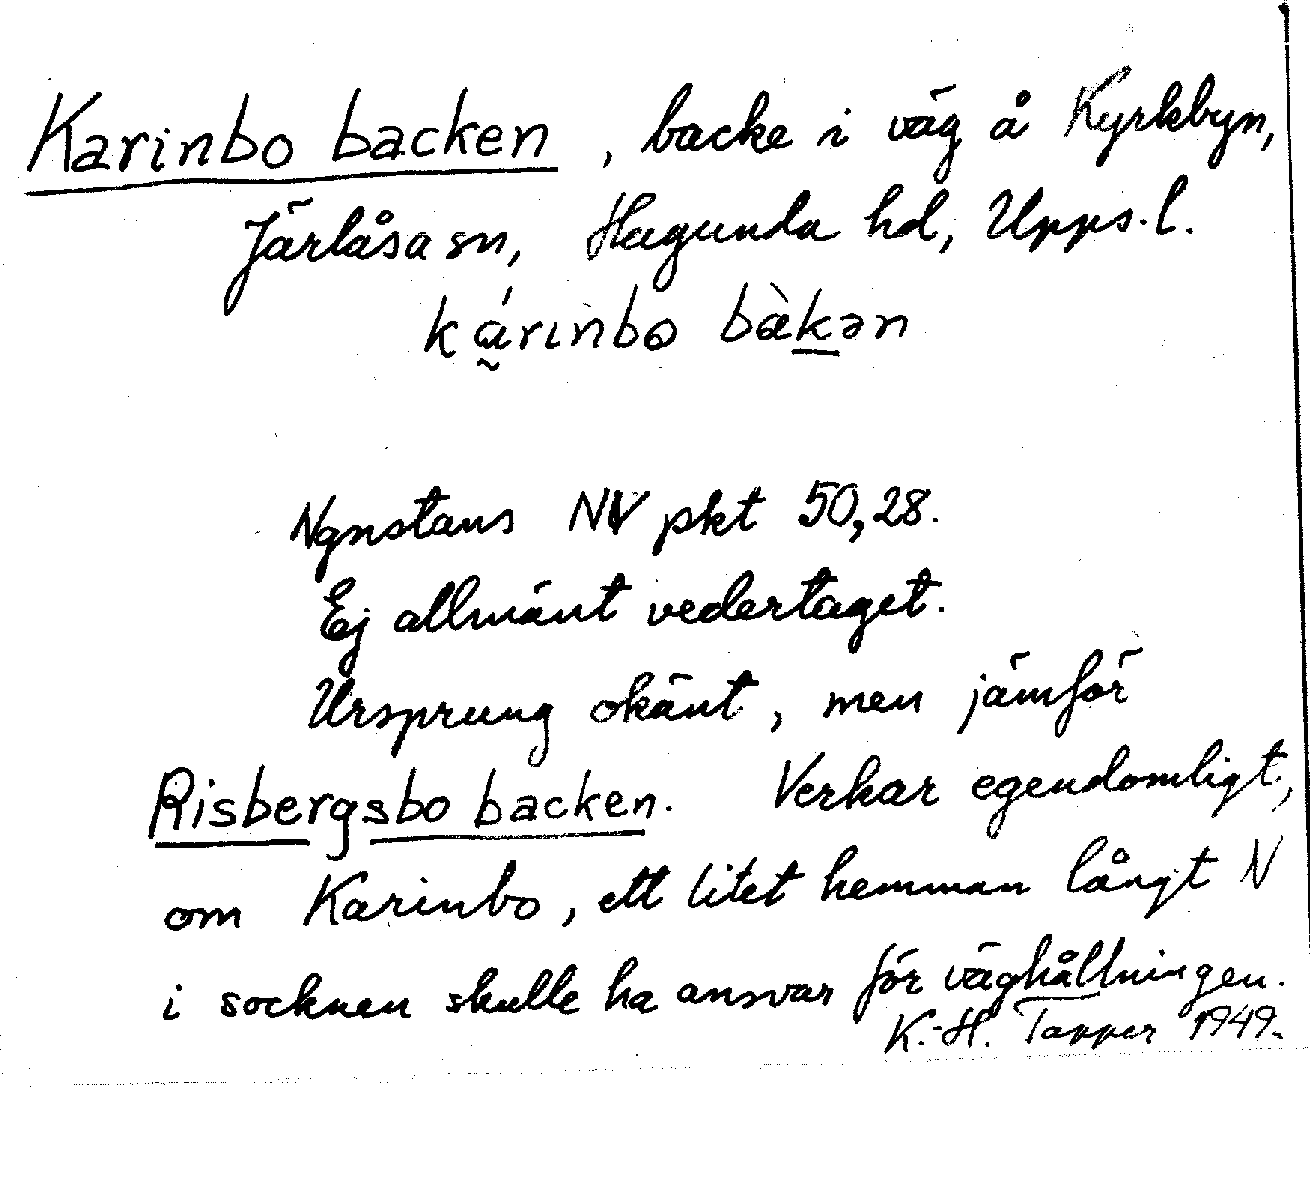 Karinbo backen, backe i väg å Kyrkbyn,
Järlåsa sn, Hagunda hd, Upps. l.
ká̰rɩǹbo bàk̲ən
Ngnstans NV pkt 50,28.
Ej allmänt vedertaget.
Ursprung okänt, men jämför
Risbergsbo backen. Verkar egendomligt,
om Karinbo, ett litet hemman långt N
i socknen skulle ha ansvar för väghållningen.
K.-H. Tapper 1949.